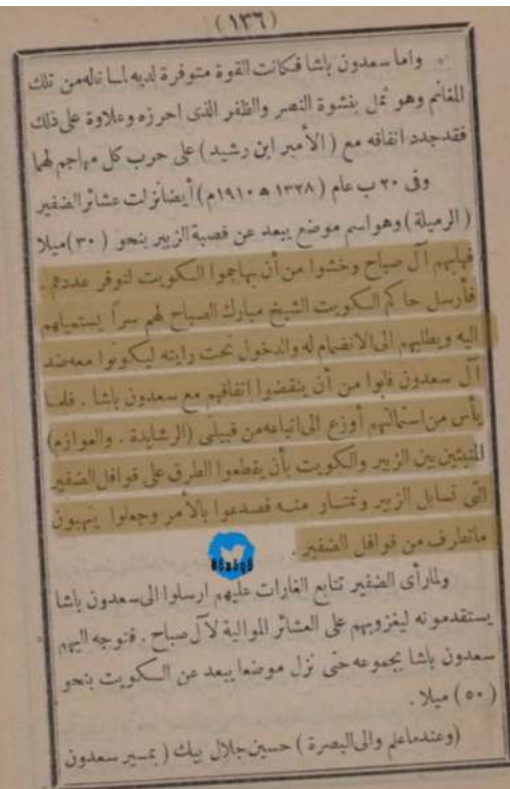 (١٣٦)
واما سعدون باشا فكانت القوة متوفرة لديه لما ناله من تلك
المغانم وهو ثمل بنشوة النصر والظفر الذى احرزه وعلاوة على ذلك
فقد جدد اتفاقه مع ( الأمير ابن رشيد ) على حرب كل مهاجم لهما
وفى ٢٠ ب عام ( ١٣٢٨ ه ١٩١٠ م ) أيضا نزلت عشائر الضفير
( الرميلة ) وهو اسم موضع يبعد عن قصبة الزبير بنحو ( ٣٠ ) ميلا
فهابهم آل صباح وخشوا من أن يهاجموا الكويت لتوفر عددهم .
فأرسل حاكم الكويت الشيخ مبارك الصباح لهم سراً يستميلهم
اليه ويطلبهم الى الانضمام له والدخول تحت رايته ليكونوا معه ضد
آل سعدون فابوا من أن ينقضوا اتفاقهم مع سعدون باشا . فلما
يأس من استمالتهم أوزع الى اتباعه من قبيلتى ( الرشايدة . والعوازم )
المنبثين بين الزبير والكويت بأن يقطعوا الطرق على قوافل الضفير
التى تسابل الزبير وتمتار منه فصدعوا بالأمر وجعلوا ينهبون
ماتطرف من قوافل الضفير .
ولما رأى الضفير تتابع الغارات عليهم ارسلوا الى سعدون باشا
يستقدمونه ليغزوبهم على العشائر الموالية لآل صباح . فتوجه اليهم
سعدون باشا بجموعه حتى نزل موضعا يبعد عن الكويت بنحو
( ٥٠ ) ميلا .
(وعندما علم والى البصرة ) حسين جلال بيك ( بمسير سعدون